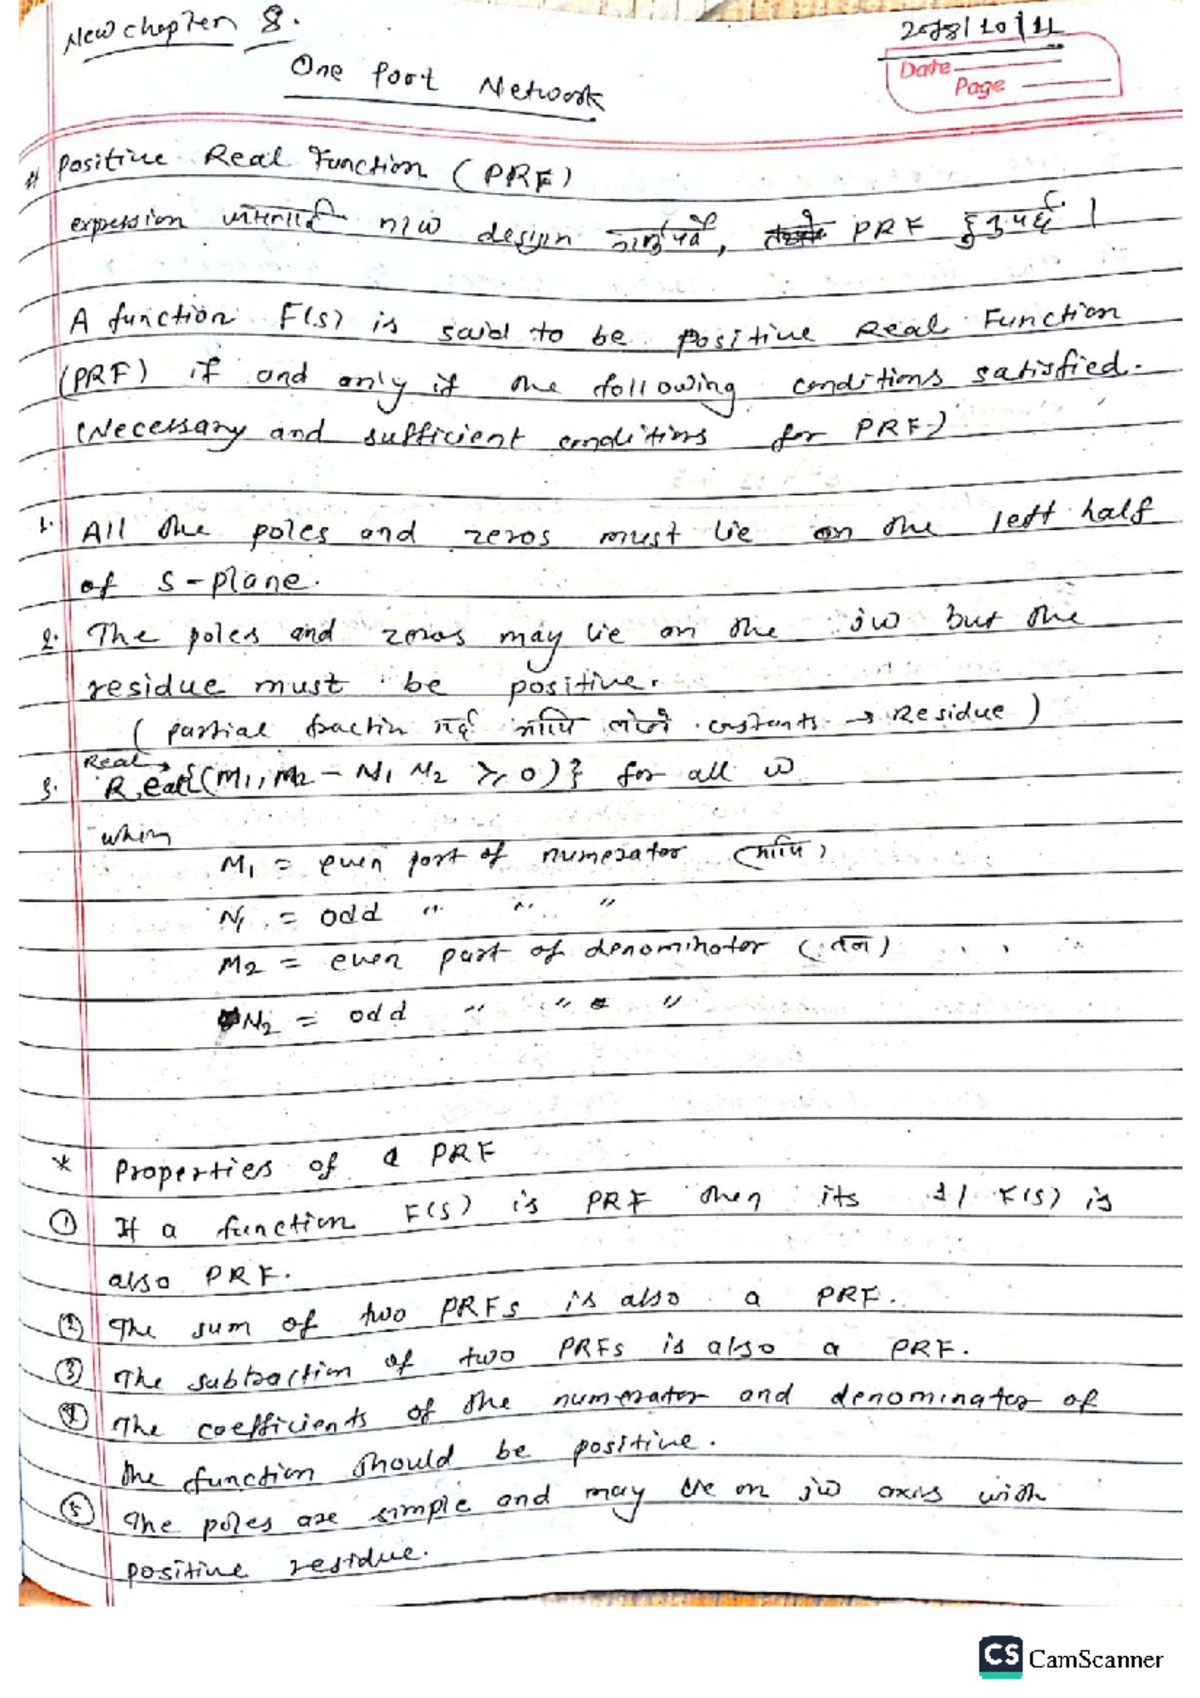 New chapter 8.
2078/10/11
Date
Page
One Port Network
# Positive Real Function (PRF)
expression n/w design PRF हुनुपर्छ ।
A function F(s) is said to be positive Real Function
(PRF) if and only if the following conditions satisfied.
(Necessary and sufficient conditions for PRF)
1. All the poles and zeros must lie on the left half
of s-plane.
2. The poles and zeros may lie on the jω but the
residue must be positive.
( partial fraction गर्दा माथि constants → Residue )
Real
3. Real{(M1, M2 - N1 N2 ≥ 0)} for all ω
when
M1 = even part of numerator (माथि)
N1 = odd " " "
M2 = even part of denominator (तल)
N2 = odd " " "
* Properties of a PRF
① If a function F(s) is PRF then its 1/F(s) is
also PRF.
② The sum of two PRFs is also a PRF.
③ The subtraction of two PRFs is also a PRF.
④ The coefficients of the numerator and denominator of
the function should be positive.
⑤ The poles are simple and may lie on jω axis with
positive residue.
CS CamScanner